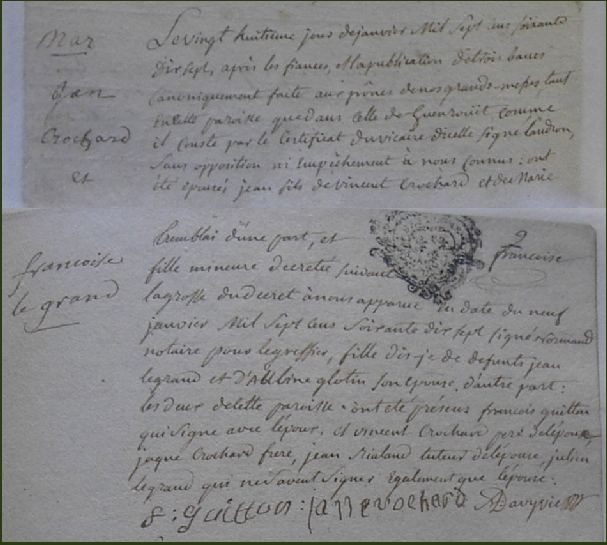 Mar
Jan
Crochard
et
Le vingt huitieme jour de janvier Mil Sept cens soixante
dix sept, après les fiances, et la publication de trois bancs
canoniquement faite aux prônes de nos grands-messes, tant
en cette paroisse que dans celle de Guenroüet comme
il conste par le Certificat du vicaire d'icelle signé Landron,
sans opposition ni Empêchement à nous connus: ont
été épousés jean fils de vincent Crochard et de Marie
francoise
le grand
tremblai d'une part, et
francoise
fille mineure decretée suivant
la grosse du decret à nous apparue en date du neuf
janvier Mil Sept cens soixante dix sept signé normand
notaire pour le greffier, fille dis-je de defunts jean
legrand et d'Albine glotin son epouse, d'autre part:
les deux de cette paroisse. ont été présens françois guitton
qui signe avec l'époux, et vincent Crochard pere de l'époux
jaque Crochard frere, jean rialand tuteur de l'épouse, julien
legrand qui ne savent signer Egalement que l'épouse.
f: guitton: jan crochard